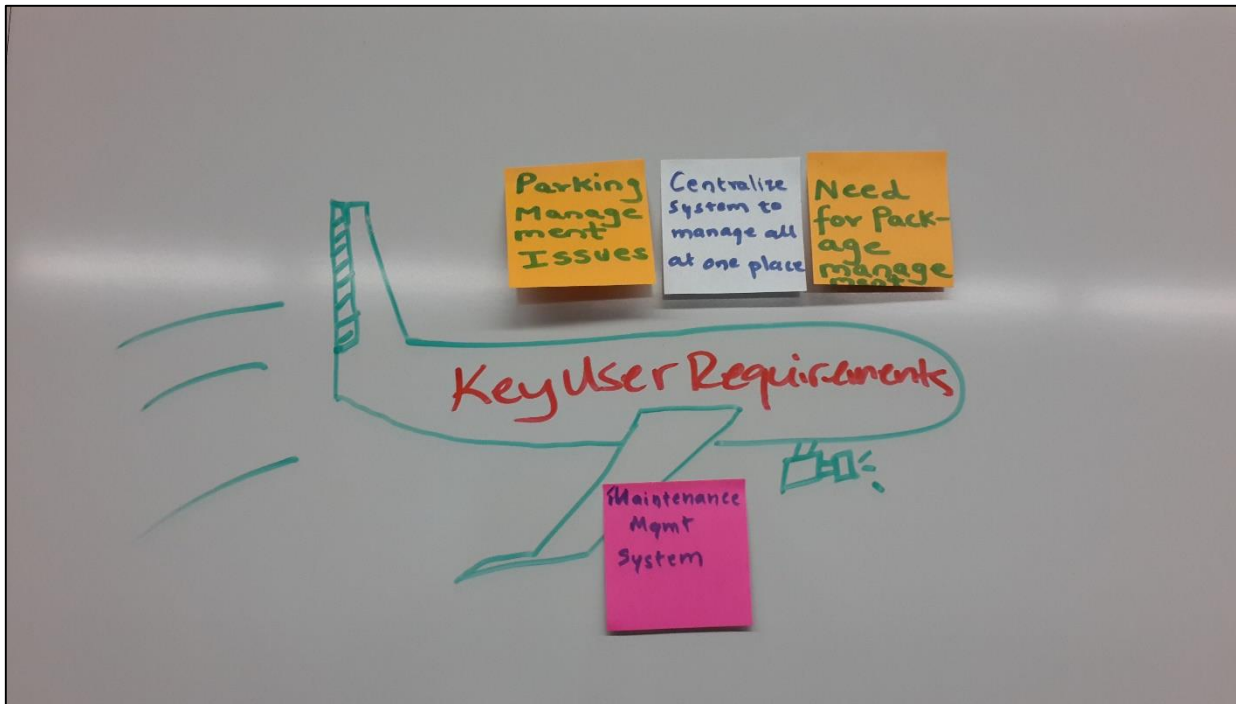 Parking
Manage
ment
Issues
Centralize
System to
manage all
at one place
Need
for Pack-
age
manage
ment
Key User Requirements
Maintenance
Mgmt
System